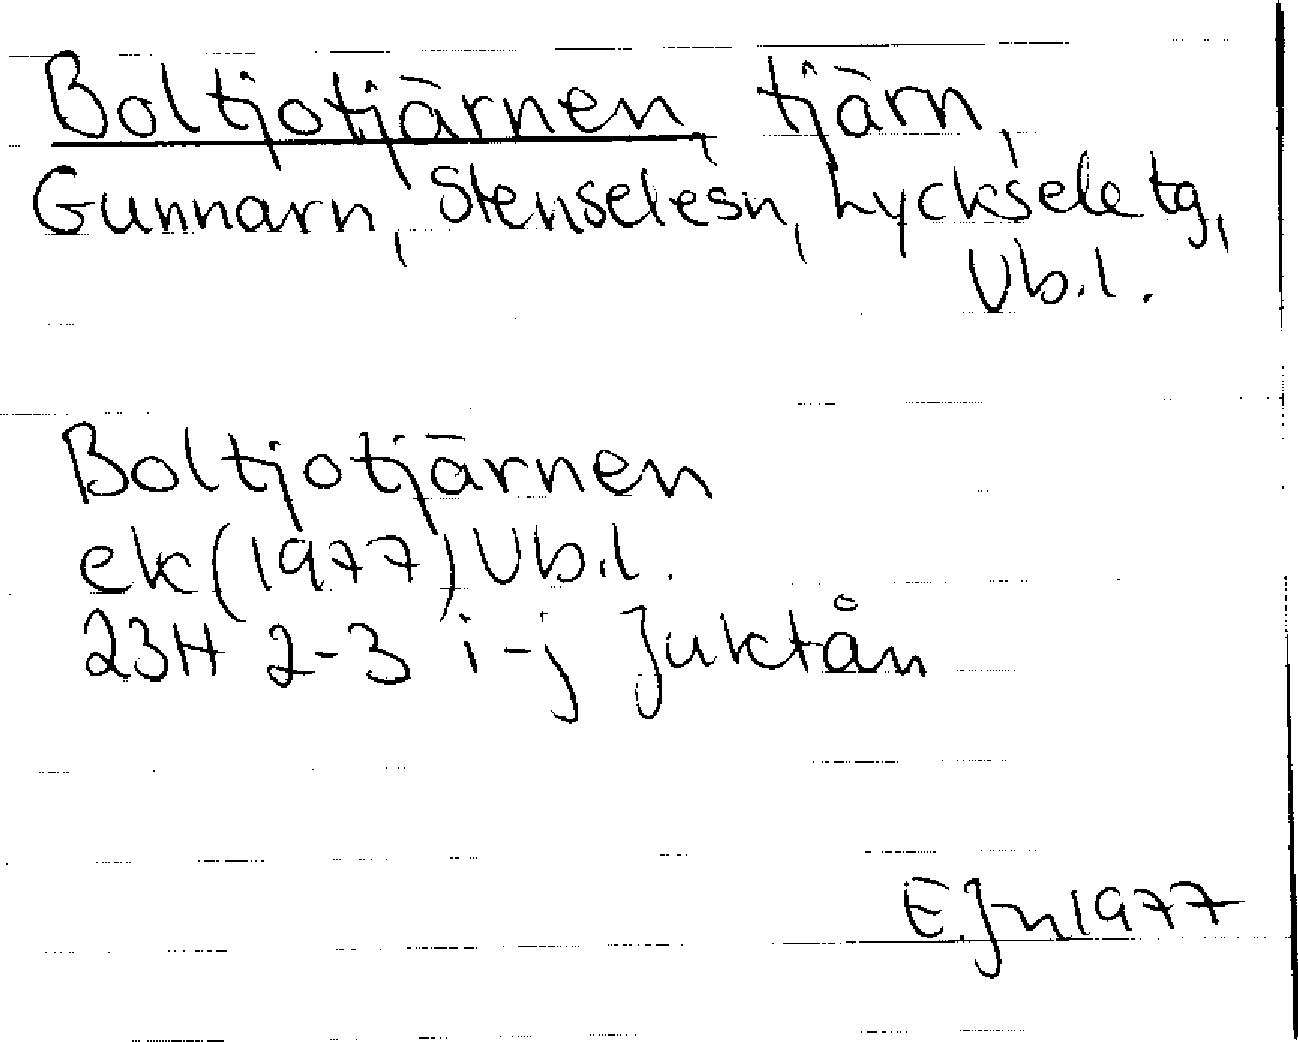 Boltjotjärnen, tjärn,
Gunnarn, Stensele sn, Lycksele tg,
Vb.l.
Boltjotjärnen
ek (1977) Vb.l.
23H 2-3 i-j Juktån
E.Jn 1977